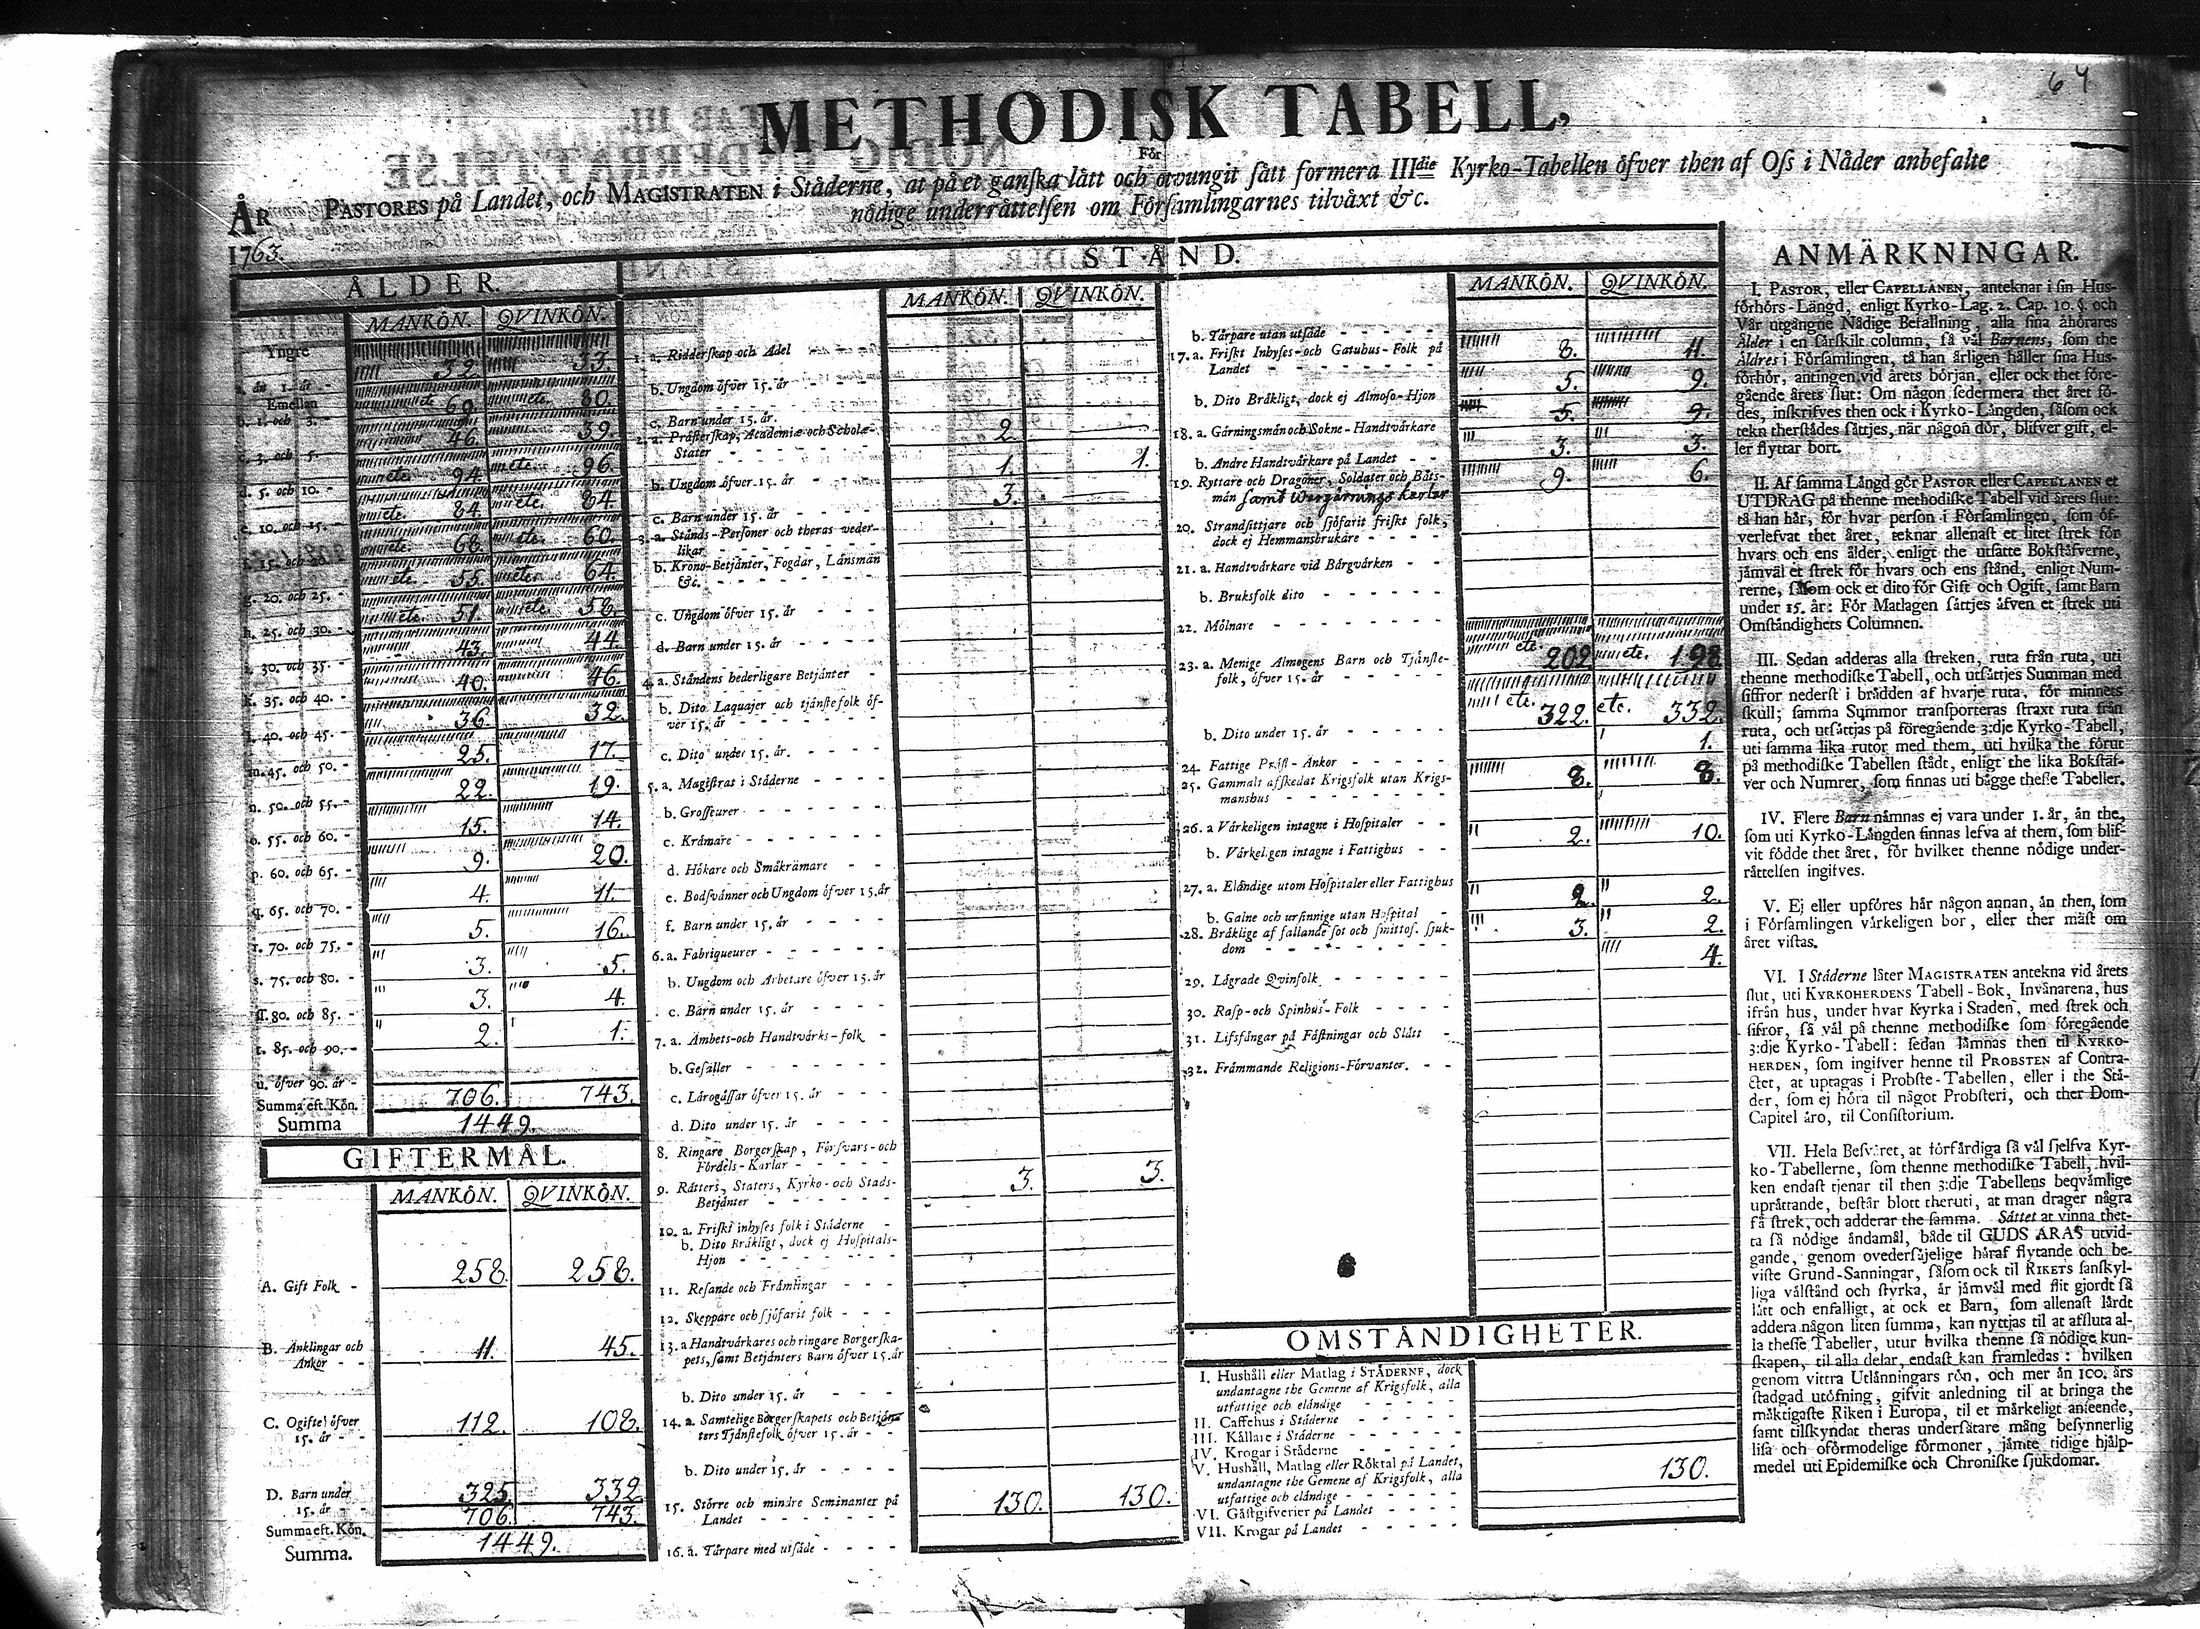 64
METHODISK TABELL,
För
PASTORES på Landet, och MAGISTRATEN i Städerne, at på et ganſka lått och otvungit ſätt formera IIIdie Kyrko-Tabellen öfver then af Oſs i Nåder anbefalte
nödige underrättelſen om Förſamlingarnes tilväxt &c.
ÅR
1763.
ÅLDER.
MANKÖN. QVINKÖN.
Yngre
a. än 1. år - 32. 33.
Emellan
b. 1. och 3. etc 69. etc. 80.
c. 3. och 5. 46. 39.
d. 5. och 10. - etc. 94. etc. 96.
e. 10. och 15. - etc. 84. etc. 84.
f. 15. och 20. etc. 68. etc. 60.
g. 20. och 25. - etc. 55. etc. 64.
h. 25. och 30. - etc. 51. etc. 58.
i. 30. och 35. - 43. 44.
k. 35. och 40. - 40. 46.
l. 40. och 45. - 36. 32.
m. 45. och 50. - 25. 17.
n. 50. och 55. - 22. 19.
o. 55. och 60. - 15. 14.
p. 60. och 65. - 9. 20.
q. 65. och 70. - 4. 11.
r. 70. och 75. - 5. 16.
s. 75. och 80. - 3. 5.
ſſ. 80. och 85. - 3. 4.
t. 85. och 90. - 2. 1.
u. öfver 90. år -
Summa eft. Kön. 706. 743.
Summa 1449.
GIFTERMÅL.
MANKÖN. QVINKÖN.
A. Gift Folk - 258. 258.
B. Änklingar och
Änkor - - 11. 45.
C. Ogifte öfver
15. år - - 112. 108.
D. Barn under
15. år - - 325. 332.
Summa eft. Kön. 706. 743.
Summa. 1449.
STÅND.
MANKÖN. QVINKÖN.
1. a. Ridderſkap och Adel
b. Ungdom öfver 15. år - - - -
c. Barn under 15. år. - - - -
2. a. Präſterſkap, Academiæ och Scholæ-
Stater - - - - - - 2.
b. Ungdom öfver 15. år - - - - 1. 1.
c. Barn under 15. år - - - - 3.
3. a. Stånds-Perſoner och theras veder-
likar - - - - - -
b. Krono-Betjänter, Fogdar, Länsmän
&c. - - - - - -
c. Ungdom öfver 15. år - - - -
d. Barn under 15. år - - - -
4. a. Ståndens hederligare Betjänter -
b. Dito Laquajer och tjänſtefolk öf-
ver 15. år - - - - - -
c. Dito under 15. år. - - - -
5. a. Magiſtrat i Städerne - - - -
b. Groſſeurer - - - - - -
c. Krämare - - - - - -
d. Hökare och Småkrämare - - -
e. Bodſvänner och Ungdom öfver 15. år
f. Barn under 15. år - - - -
6. a. Fabriqueurer - - - - -
b. Ungdom och Arbetare öfver 15. år
c. Barn under 15. år - - - -
7. a. Ämbets- och Handtvärks-folk -
b. Geſäller - - - - - -
c. Lärogåſſar öfver 15. år - - -
d. Dito under 15. år - - - -
8. Ringare Borgerſkap, Förſvars- och
Fördels-Karlar - - - - -
9. Rätters, Staters, Kyrko- och Stads-
Betjänter - - - - - - 3. 3.
10. a. Friſkt inhyſes folk i Städerne -
b. Dito Bräkligt, dock ej Hoſpitals-
Hjon - - - - - - -
11. Reſande och Främlingar - - -
12. Skeppare och ſjöfarit folk - - -
13. a Handtvärkares och ringare Borgerſka-
pets, ſamt Betjänters Barn öfver 15. år
b. Dito under 15. år - - - -
14. a. Samtelige Borgerſkapets och Betjän-
ters Tjänſtefolk öfver 15. år - -
b. Dito under 15. år - - - -
15. Större och mindre Seminanter på
Landet - - - - - - 130. 130.
16. a. Tårpare med utſäde - - - -
MANKÖN. QVINKÖN.
b. Tårpare utan utſäde - - - - -
17. a. Friſkt Inhyſes- och Gatuhus-Folk på
Landet - - - - - - 8. 11.
b. Dito Bräkligt, dock ej Almoſo-Hjon 5. 9.
5. 9.
18. a. Gärningsmän och Sokne-Handtvärkare
b. Andre Handtvärkare på Landet - - 3. 3.
19. Ryttare och Dragoner, Soldater och Båts-
män 9. 6.
20. Strandſittjare och ſjöfarit friſkt folk,
dock ej Hemmansbrukare - - - -
21. a. Handtvärkare vid Bärgvärken - -
b. Bruksfolk dito - - - - - -
22. Mölnare - - - - - - - -
etc. 202 etc. 198.
23. a. Menige Almogens Barn och Tjänſte-
folk, öfver 15. år - - - - -
etc. 322. etc. 332.
b. Dito under 15. år - - - - -
1.
24. Fattige Präſt-Änkor - - - - -
25. Gammalt afſkedat Krigsfolk utan Krigs-
manshus - - - - - - - 8. 8.
26. a Värkeligen intagne i Hoſpitaler - - 2. 10.
b. Värkeligen intagne i Fattighus - -
27. a. Eländige utom Hoſpitaler eller Fattighus 2. 2.
b. Galne och urſinnige utan Hoſpital -
28. Bräklige af fallande ſot och ſmittoſ. ſjuk-
dom - - - - - - - 3. 2.
4.
29. Lägrade Qvinfolk - - - - - -
30. Raſp- och Spinhus-Folk - - - -
31. Lifsfångar på Fäſtningar och Slått - -
32. Främmande Religions-Förvanter. - -
OMSTÄNDIGHETER.
I. Hushåll eller Matlag i STÄDERNE, dock
undantagne the Gemene af Krigsfolk, alla
utfattige och eländige - - - - -
II. Caffehus i Städerne - - - - -
III. Källare i Städerne - - - - -
IV. Krogar i Städerne - - - - -
V. Hushåll, Matlag eller Röktal på Landet,
undantagne the Gemene af Krigsfolk, alla
utfattige och eländige - - - - - 130.
VI. Gäſtgifverier på Landet - - - -
VII. Krogar på Landet - - - - -
ANMÄRKNINGAR.
I. PASTOR, eller CAPELLANEN, anteknar i ſin Hus-
förhörs-Längd, enligt Kyrko-Lag. 2. Cap. 10. §. och
Vår utgångne Nådige Befallning, alla ſina åhörares
Ålder i en ſärſkilt column, ſå väl Barnens, ſom the
Äldres i Förſamlingen, tå han årligen håller ſina Hus-
förhör, antingen vid årets början, eller ock thet före-
gående årets ſlut: Om någon ſedermera thet året fö-
des, inſkrifves then ock i Kyrko-Längden, ſåſom ock
tekn therſtädes ſättjes, när någon dör, blifver gift, el-
ler flyttar bort.
II. Af ſamma Längd gör PASTOR eller CAPELLANEN et
UTDRAG på thenne methodiſke Tabell vid årets ſlut:
tå han här, för hvar perſon i Förſamlingen, ſom öf-
verlefvat thet året, teknar allenaſt et litet ſtrek för
hvars och ens ålder, enligt the utſatte Bokſtäfverne,
jämväl et ſtrek för hvars och ens ſtånd, enligt Num-
rerne, ſåſom ock et dito för Gift och Ogift, ſamt Barn
under 15. år: För Matlagen ſättjes äfven et ſtrek uti
Omſtändighets Columnen.
III. Sedan adderas alla ſtreken, ruta från ruta, uti
thenne methodiſke Tabell, och utſättjes Summan med
ſiffror nederſt i brädden af hvarje ruta, för minnets
ſkull; ſamma Summor transporteras ſtraxt ruta från
ruta, och utſättjas på föregående 3:dje Kyrko-Tabell,
uti ſamma lika rutor med them, uti hvilka the förut
på methodiſke Tabellen ſtådt, enligt the lika Bokſtäf-
ver och Numrer, ſom finnas uti bägge theſſe Tabeller.
IV. Flere Barn nämnas ej vara under 1. år, än the,
ſom uti Kyrko-Längden finnas lefva af them, ſom blif-
vit födde thet året, för hvilket thenne nödige under-
rättelſen ingifves.
V. Ej eller upföres här någon annan, än then, ſom
i Förſamlingen värkeligen bor, eller ther mäſt om
året viſtas.
VI. I Städerne låter MAGISTRATEN antekna vid årets
ſlut, uti KYRKOHERDENS Tabell-Bok, Invånarena, hus
ifrån hus, under hvar Kyrka i Staden, med ſtrek och
ſifror, ſå väl på thenne methodiſke ſom föregående
3:dje Kyrko-Tabell: ſedan lämnas then til KYRKO-
HERDEN, ſom ingifver henne til PROBSTEN af Contra-
ctet, at uptagas i Probſte-Tabellen, eller i the Stä-
der, ſom ej höra til något Probſteri, och ther Dom-
Capitel äro, til Conſiſtorium.
VII. Hela Beſväret, at förfärdiga ſå väl ſjelfva Kyr-
ko-Tabellerne, ſom thenne methodiſke Tabell, hvil-
ken endaſt tjenar til then 3:dje Tabellens beqvämlige
uprättande, beſtår blott theruti, at man drager några
få ſtrek, och adderar the ſamma. Sättet at vinna thet-
ta ſå nödige ändamål, både til GUDS ÄRAS utvid-
gande, genom ovederſäjelige häraf flytande och be-
viſte Grund-Sanningar, ſåſom ock til RIKETS ſanſkyl-
liga välſtånd och ſtyrka, är jämväl med flit gjordt ſå
lätt och enfalligt, at ock et Barn, ſom allenaſt lärdt
addera någon liten ſumma, kan nyttjas til at afſluta al-
la theſſe Tabeller, utur hvilka thenne ſå nödige kun-
ſkapen, til alla delar, endaſt kan framledas: hvilken
genom vittra Utlänningars rön, och mer än 100. års
ſtadgad utöfning, gifvit anledning til at bringa the
mäktigaſte Riken i Europa, til et märkeligt anſeende,
ſamt tilſkyndat theras underſåtare mång beſynnerlig
liſa och oförmodelige förmoner, jämte tidige hjälp-
medel uti Epidemiſke och Chroniſke ſjukdomar.